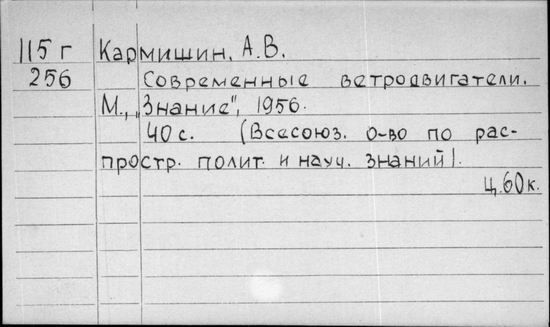 115 г Кармишин, А.В.
256 Современные ветродвигатели.
М., „Знание", 1956.
40 с. (Всесоюз. о-во по рас-
простр. полит. и науч. знаний).
ц. 60 к.